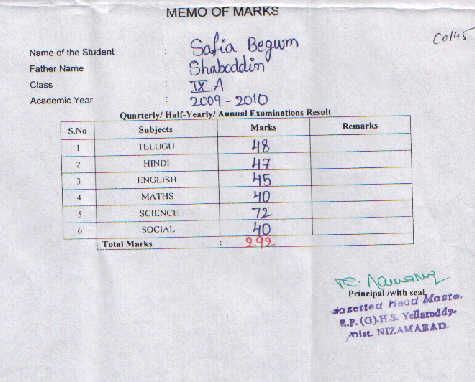 MEMO OF MARKS
Co145
Name of the Student : Safia Begum
Father Name : Shaboddin
Class : IX A
Academic Year : 2009-2010
Quarterly/ Half-Yearly/ Annual Examinations Result
S.No Subjects Marks Remarks
1 TELUGU 48
2 HINDI 47
3 ENGLISH 45
4 MATHS 40
5 SCIENCE 72
6 SOCIAL 40
Total Marks : 292
Principal /with seal
Gazetted Head Maste.
Z.P. (G).H.S. Yellareddy.
Dist. NIZAMABAD.